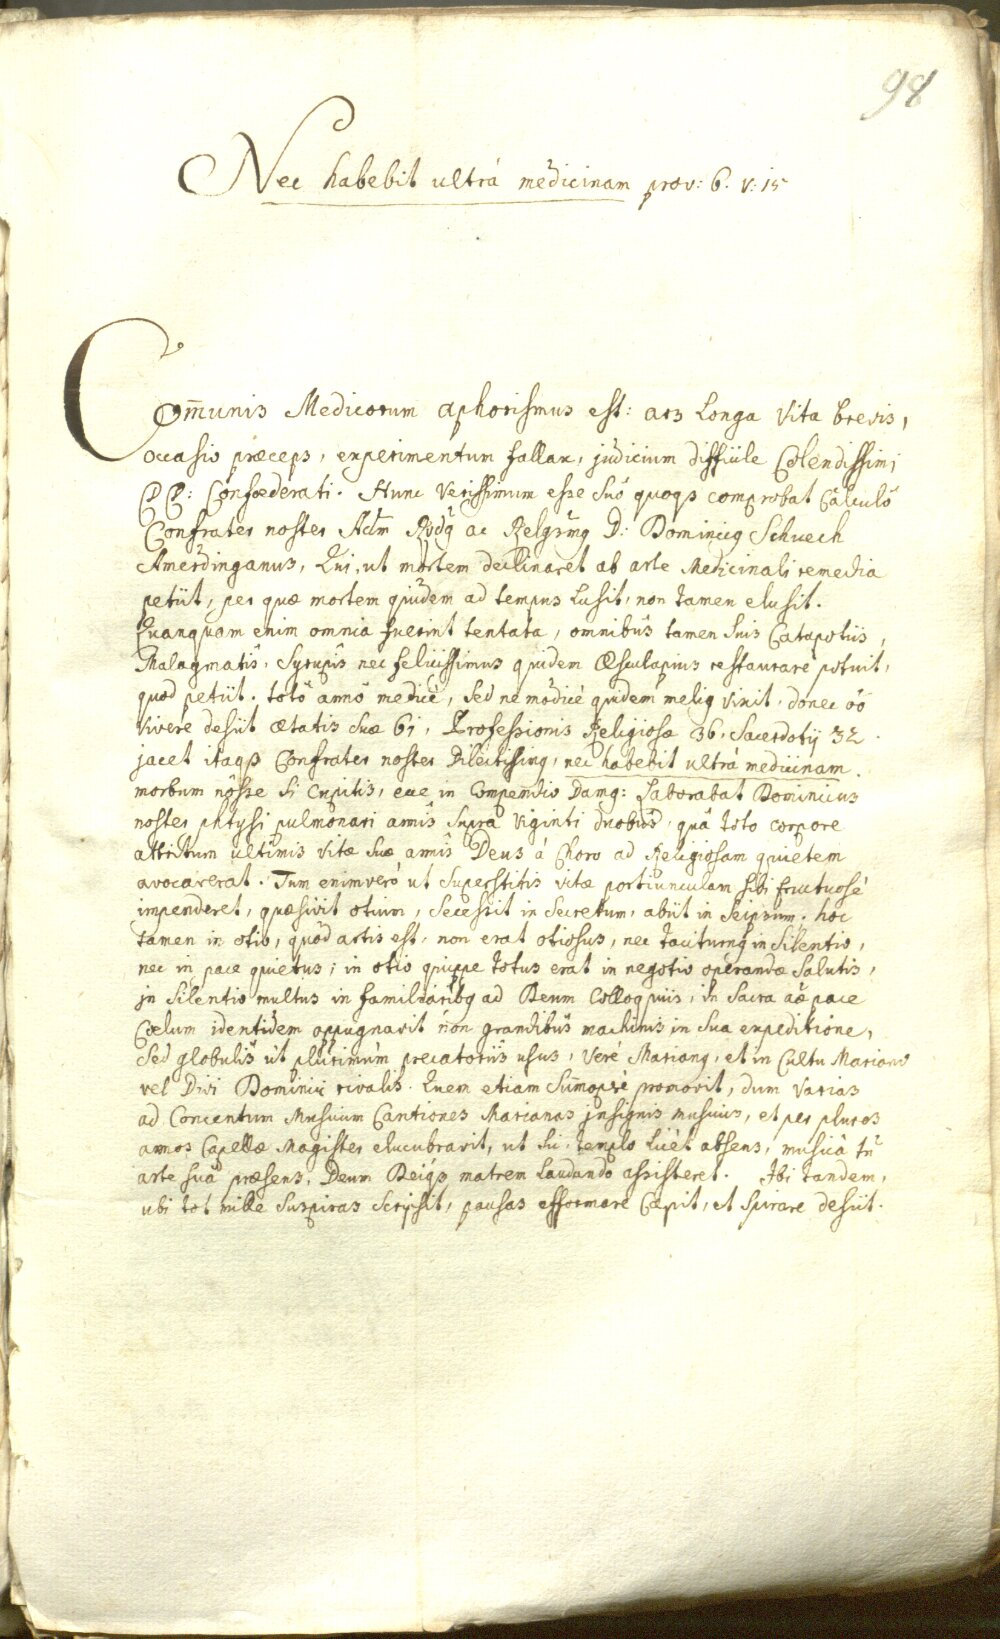 98
Nec habebit ultrá medicinam prov: 6. v: 15
Com̄unis Medicorum aphorismus est: ars Longa Vita brevis,
occasio præceps, experimentum fallax, judicium difficile Colendissimi
PP: Confœderati. Hunc Verissimum esse suô quoqȝ comprobat Calculô
Confrater noster Adm Rvdq ac Relgsmq D: Dominicq Schuech
Amerdinganus, Qui, ut mortem declinaret ab arte Medicinali remedia
petiit, per quæ mortem quidem ad tempus Lusit, non tamen elusit.
Quanquam enim omnia fuerint tentata, omnibus tamen suis Catapotiis,
Malagmatis, Syrupis nec felicissimus quidem Æsculapius restaurare potuit,
quod petiit. totô annô medicè, sed ne modicè quidem meliq vixit, donec
vivere desiit ætatis suæ 61, Professionis Religiosæ 36, Sacerdotij 32.
jacet itaqȝ Confrater noster Dilectissimq, nec habebit ultrá medicinam.
morbum nôsse si cupitis, eue in Compendio Damq: Laborabat Dominicus
noster phtysi pulmonari annis supra viginti duobus, quâ toto corpore
attritum ultimis vitæ suæ annis Deus á Choro ad Religiosam quietem
avocaverat. Tum enimveró ut superstitis vitæ portiunculam sibi fructuosé
impenderet, quæsivit otium, secessit in secretum, abiit in seipsum. hoc
tamen in otio, quod artis est, non erat otiosus, nec taciturnq in Silentio,
nec in pace quietus; in otio quippe totus erat in negotio operandæ Salutis,
in Silentio multus in familiaribq ad Deum Colloquiis, in Sacra pace
Cœlum identidem oppugnavit non grandibus machinis in sua expeditione,
sed globulis ut plurimum precatoriis usus, veré Marianq, et in Cultu Mariano
vel Divi Dominici rivalis. Quem etiam sum̄opere promovit, dum varias
ad Concentum Musicum Cantiones Marianas insignis musicus, et per plures
annos Capellæ Magister elucubravit, ut sic templo licèt absens, musicâ tn̄
arte suâ præsens, Deum Deiqȝ matrem Laudando assisteret. Ibi tandem,
ubi tot mille suspiras scripsit, pausas efformare Cœpit, et spirare desiit.